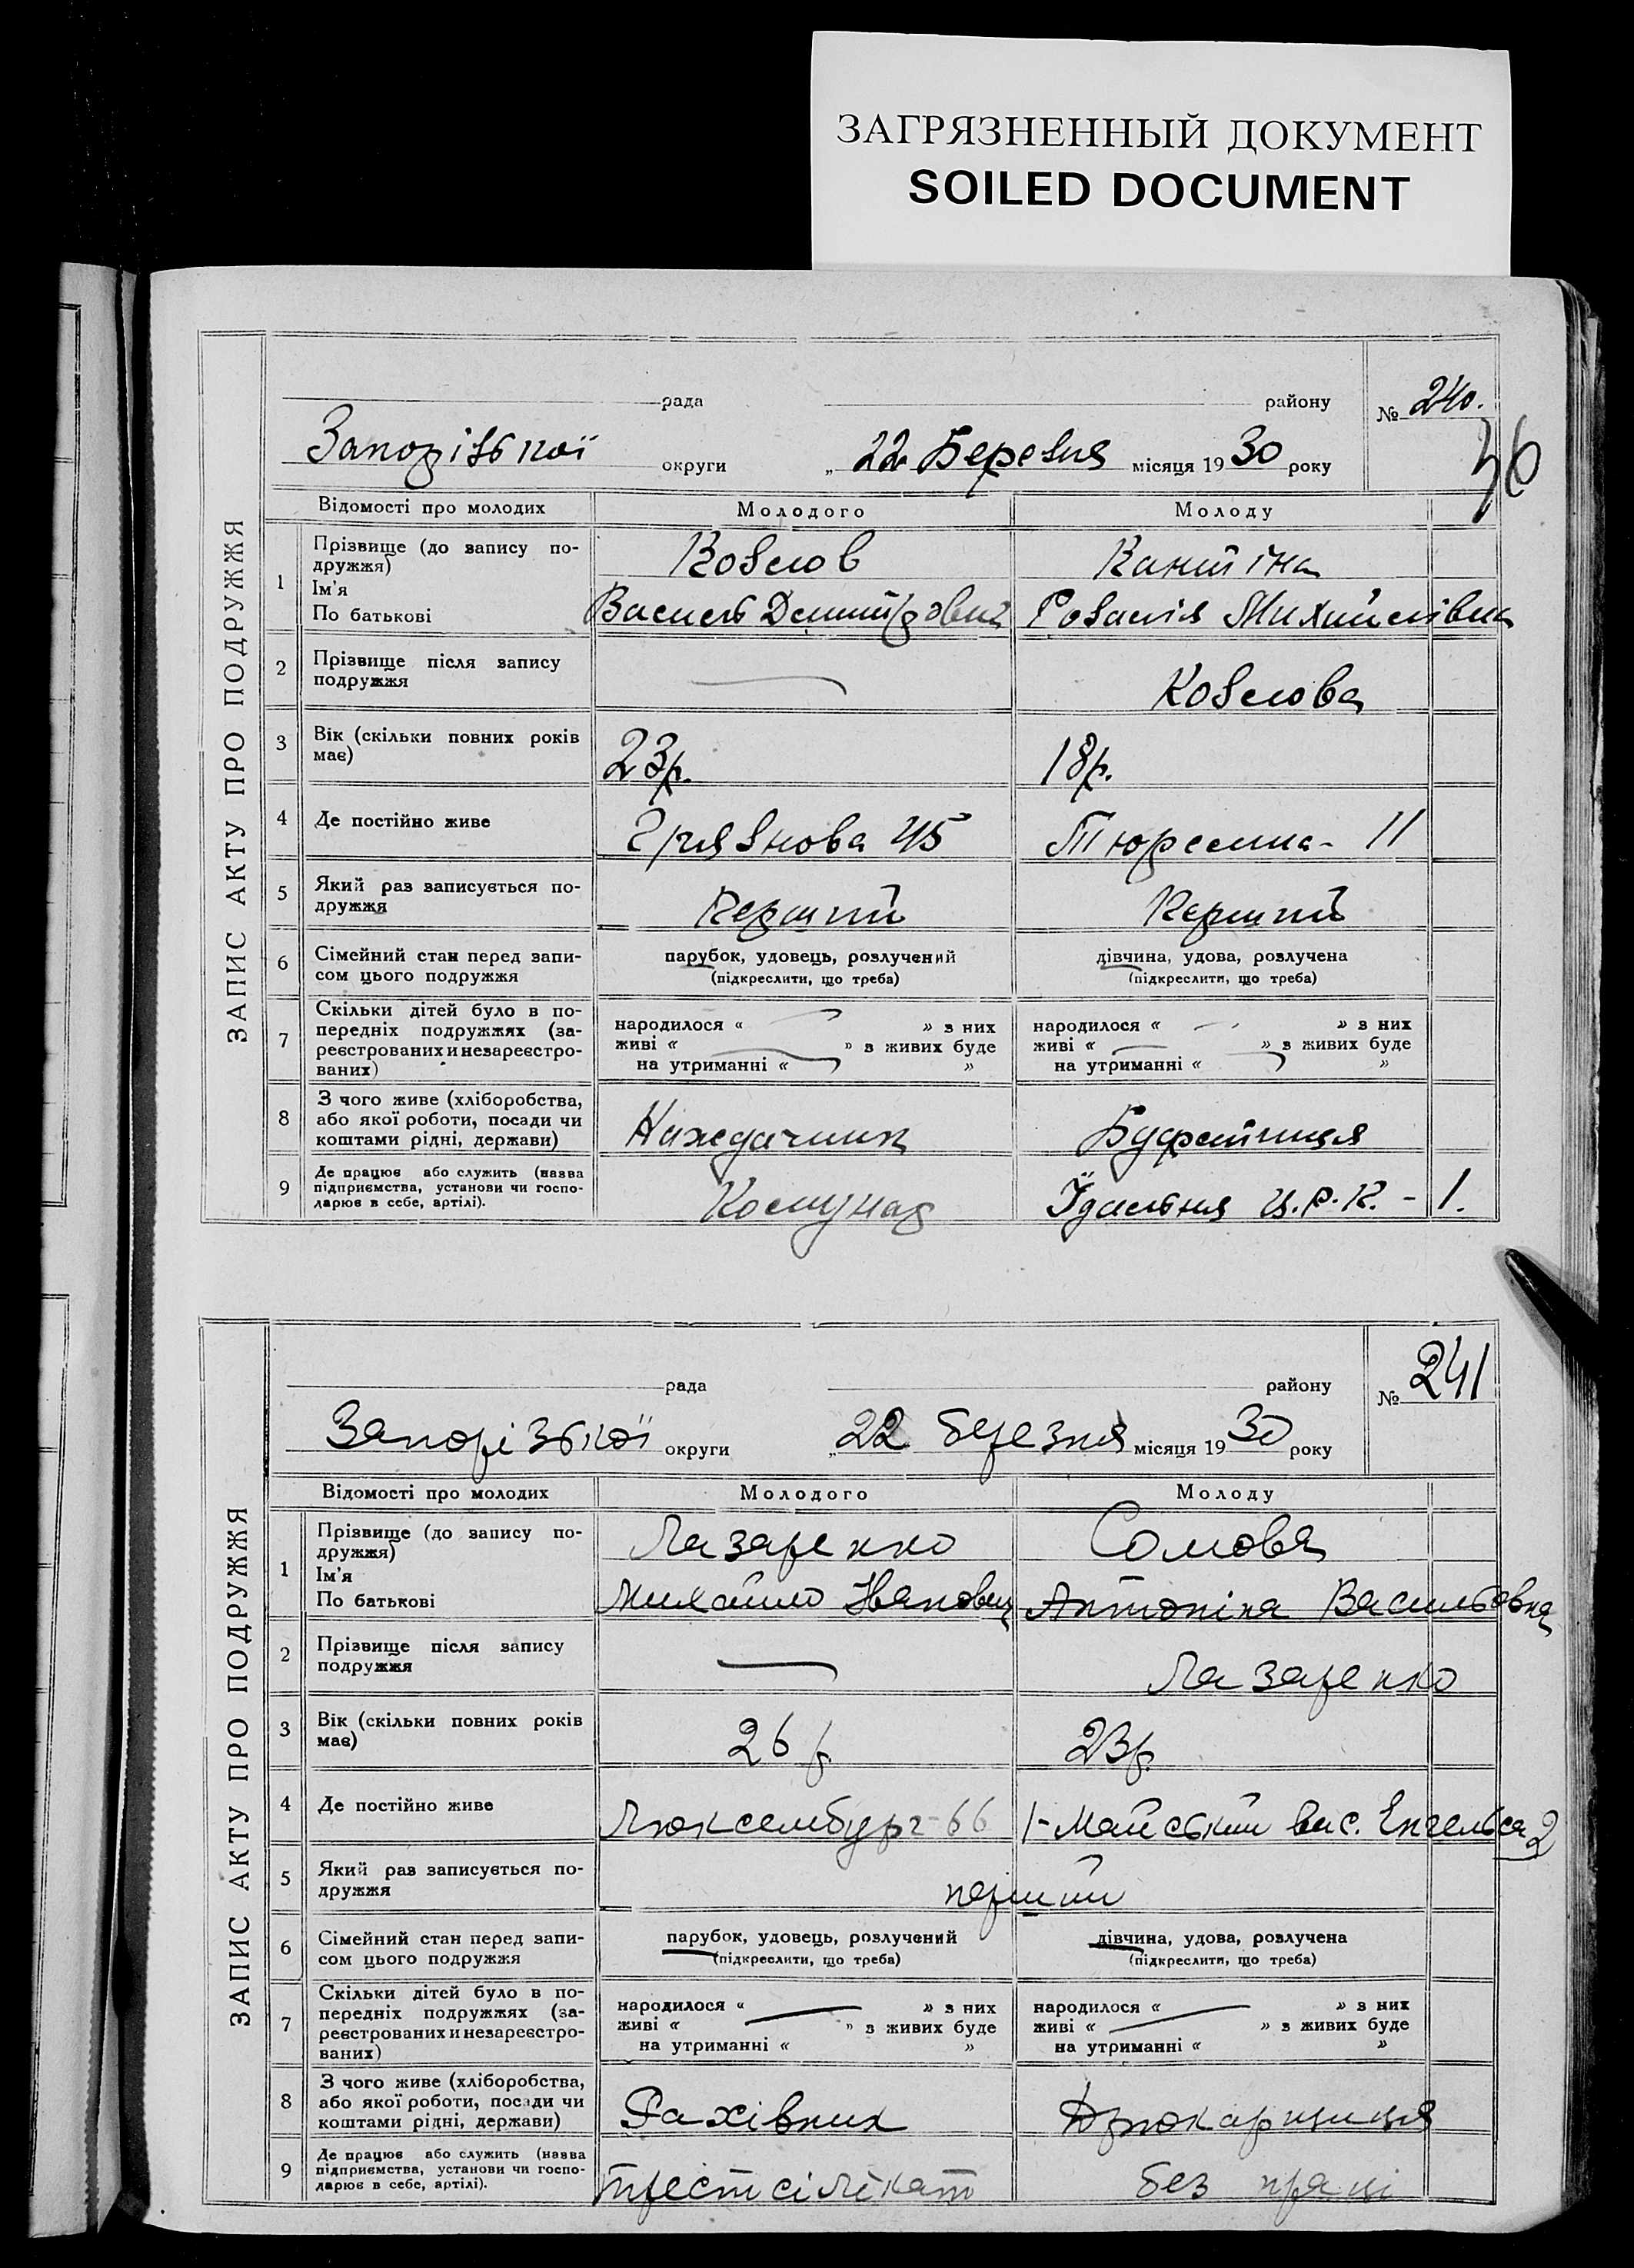 ЗАГРЯЗНЕННЫЙ ДОКУМЕНТ
SOILED DOCUMENT
ЗАПИС АКТУ ПРО ПОДРУЖЖЯ
рада району № 240.
36
Запорізької округи „ 22 Березня місяця 1930 року
Відомості про молодих Молодого Молоду
1 Прізвище (до запису по-
дружжя) Козлов
Ім'я
По батькові Василь Розалія Михайлівна
2 Прізвище після запису
подружжя — Козлова
3 Вік (скільки повних років
має) 23р. 18р.
4 Де постійно живе 45 Тюремна - 11
5 Який раз записується по-
дружжя Перший Перший
6 Сімейний стан перед запи-
сом цього подружжя
парубок, удовець, розлучений дівчина, удова, розлучена
(підкреслити, що треба) (підкреслити, що треба)
7 Скільки дітей було в по-
передніх подружжях (за-
реєстрованих и незареєстро-
ваних)
народилося « — » з них народилося « — » з них
живі « — » з живих буде живі « — » з живих буде
на утриманні « » на утриманні « »
8 З чого живе (хліборобства,
або якої роботи, посади чи
коштами рідні, держави) Буфетниця
9 Де працює або служить (назва
підприємства, установи чи госпо-
дарює в себе, артілі). Їдальня Ц.Р.К. - 1.
ЗАПИС АКТУ ПРО ПОДРУЖЖЯ
рада району № 241
Запорізької округи „ 22 березня місяця 1930 року
Відомості про молодих Молодого Молоду
1 Прізвище (до запису по-
дружжя) Лазаренко Сомова
Ім'я
По батькові Михайло Іванович Антоніна Васильовна
2 Прізвище після запису
подружжя — Лазаренко
3 Вік (скільки повних років
має) 26 р. 23р.
4 Де постійно живе Люксембург-66 1-Майський вис. Енгельса 2
5 Який раз записується по-
дружжя перший
6 Сімейний стан перед запи-
сом цього подружжя
парубок, удовець, розлучений дівчина, удова, розлучена
(підкреслити, що треба) (підкреслити, що треба)
7 Скільки дітей було в по-
передніх подружжях (за-
реєстрованих и незареєстро-
ваних)
народилося « — » з них народилося « — » з них
живі « » з живих буде живі « — » з живих буде
на утриманні « » на утриманні « »
8 З чого живе (хліборобства,
або якої роботи, посади чи
коштами рідні, держави) Рахівник Друкарщиця
9 Де працює або служить (назва
підприємства, установи чи госпо-
дарює в себе, артілі). трест сілікат без праці